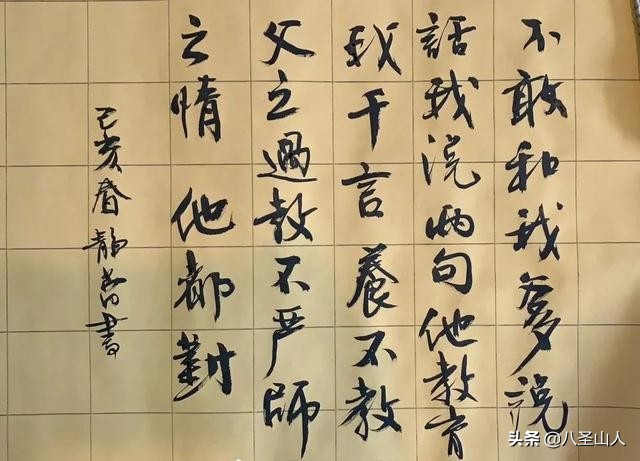 不敢和我爹説
話我説兩句他教育
我千言養不教
父之過教不严師
之情他都對
己亥春静書
头条 @八圣山人